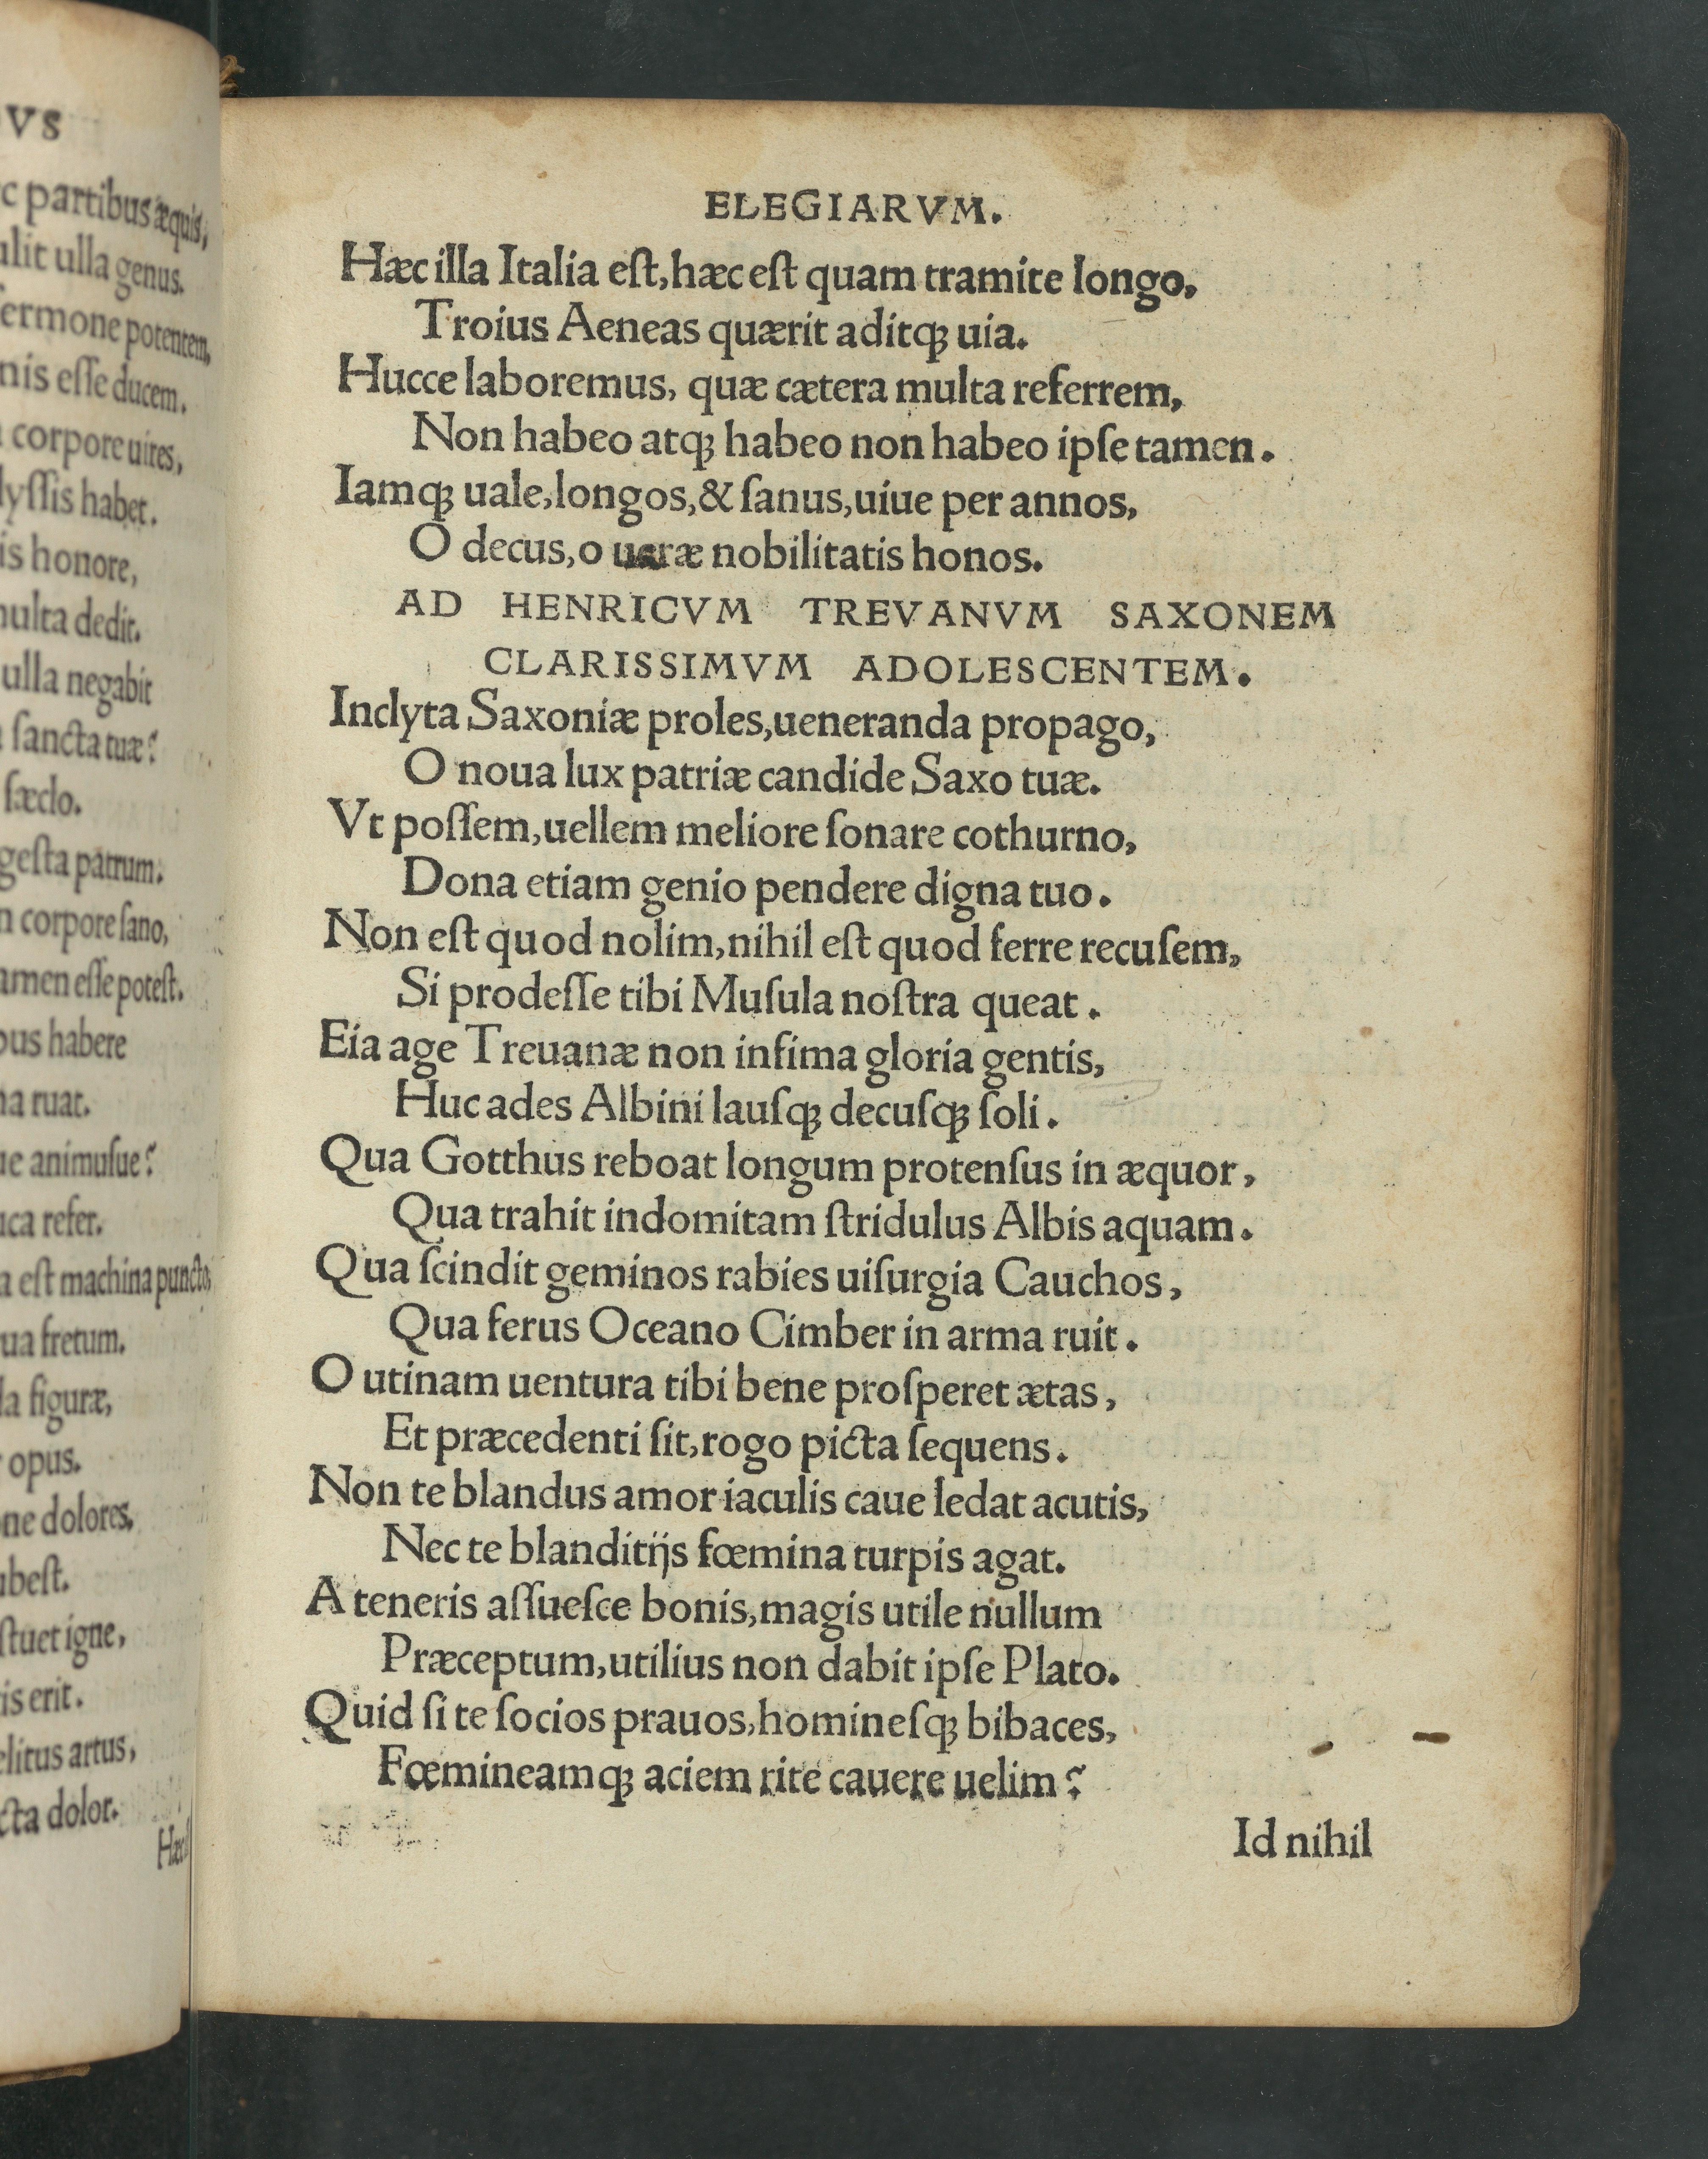 VS
partibus æquis,
ulla genus.
potentem,
esse ducem.
corpore uires,
habet.
honore,
dedit.
ulla negabit
sancta tuæ?
sæclo.
gesta patrum.
corpore sano,
esse potest.
habere
ruat.
animusue?
refer.
est machina puncto,
fretum.
figuræ,
opus.
dolores,
igne,
erit.
artus,
dolor.
ELEGIARVM.
Hæc illa Italia eſt, hæc eſt quam tramite longo,
Troius Aeneas quærit aditqꝫ uia.
Hucce laboremus, quæ cætera multa referrem,
Non habeo atqꝫ habeo non habeo ipſe tamen.
Iamqꝫ uale, longos, & ſanus, uiue per annos,
O decus, o ueræ nobilitatis honos.
AD HENRICVM TREVANVM SAXONEM
CLARISSIMVM ADOLESCENTEM.
Inclyta Saxoniæ proles, ueneranda propago,
O noua lux patriæ candide Saxo tuæ.
Vt poſſem, uellem meliore ſonare cothurno,
Dona etiam genio pendere digna tuo.
Non eſt quod nolim, nihil eſt quod ferre recuſem,
Si prodeſſe tibi Muſula noſtra queat.
Eia age Treuanæ non infima gloria gentis,
Huc ades Albini lauſqꝫ decuſqꝫ ſoli.
Qua Gotthus reboat longum protenſus in æquor,
Qua trahit indomitam ſtridulus Albis aquam.
Qua ſcindit geminos rabies uiſurgia Cauchos,
Qua ferus Oceano Cimber in arma ruit.
O utinam uentura tibi bene proſperet ætas,
Et præcedenti ſit, rogo picta ſequens.
Non te blandus amor iaculis caue ledat acutis,
Nec te blanditijs fœmina turpis agat.
A teneris aſſueſce bonis, magis utile nullum
Præceptum, utilius non dabit ipſe Plato.
Quid ſi te ſocios prauos, homineſqꝫ bibaces,
Fœmineamqꝫ aciem rite cauere uelim?
Id nihil